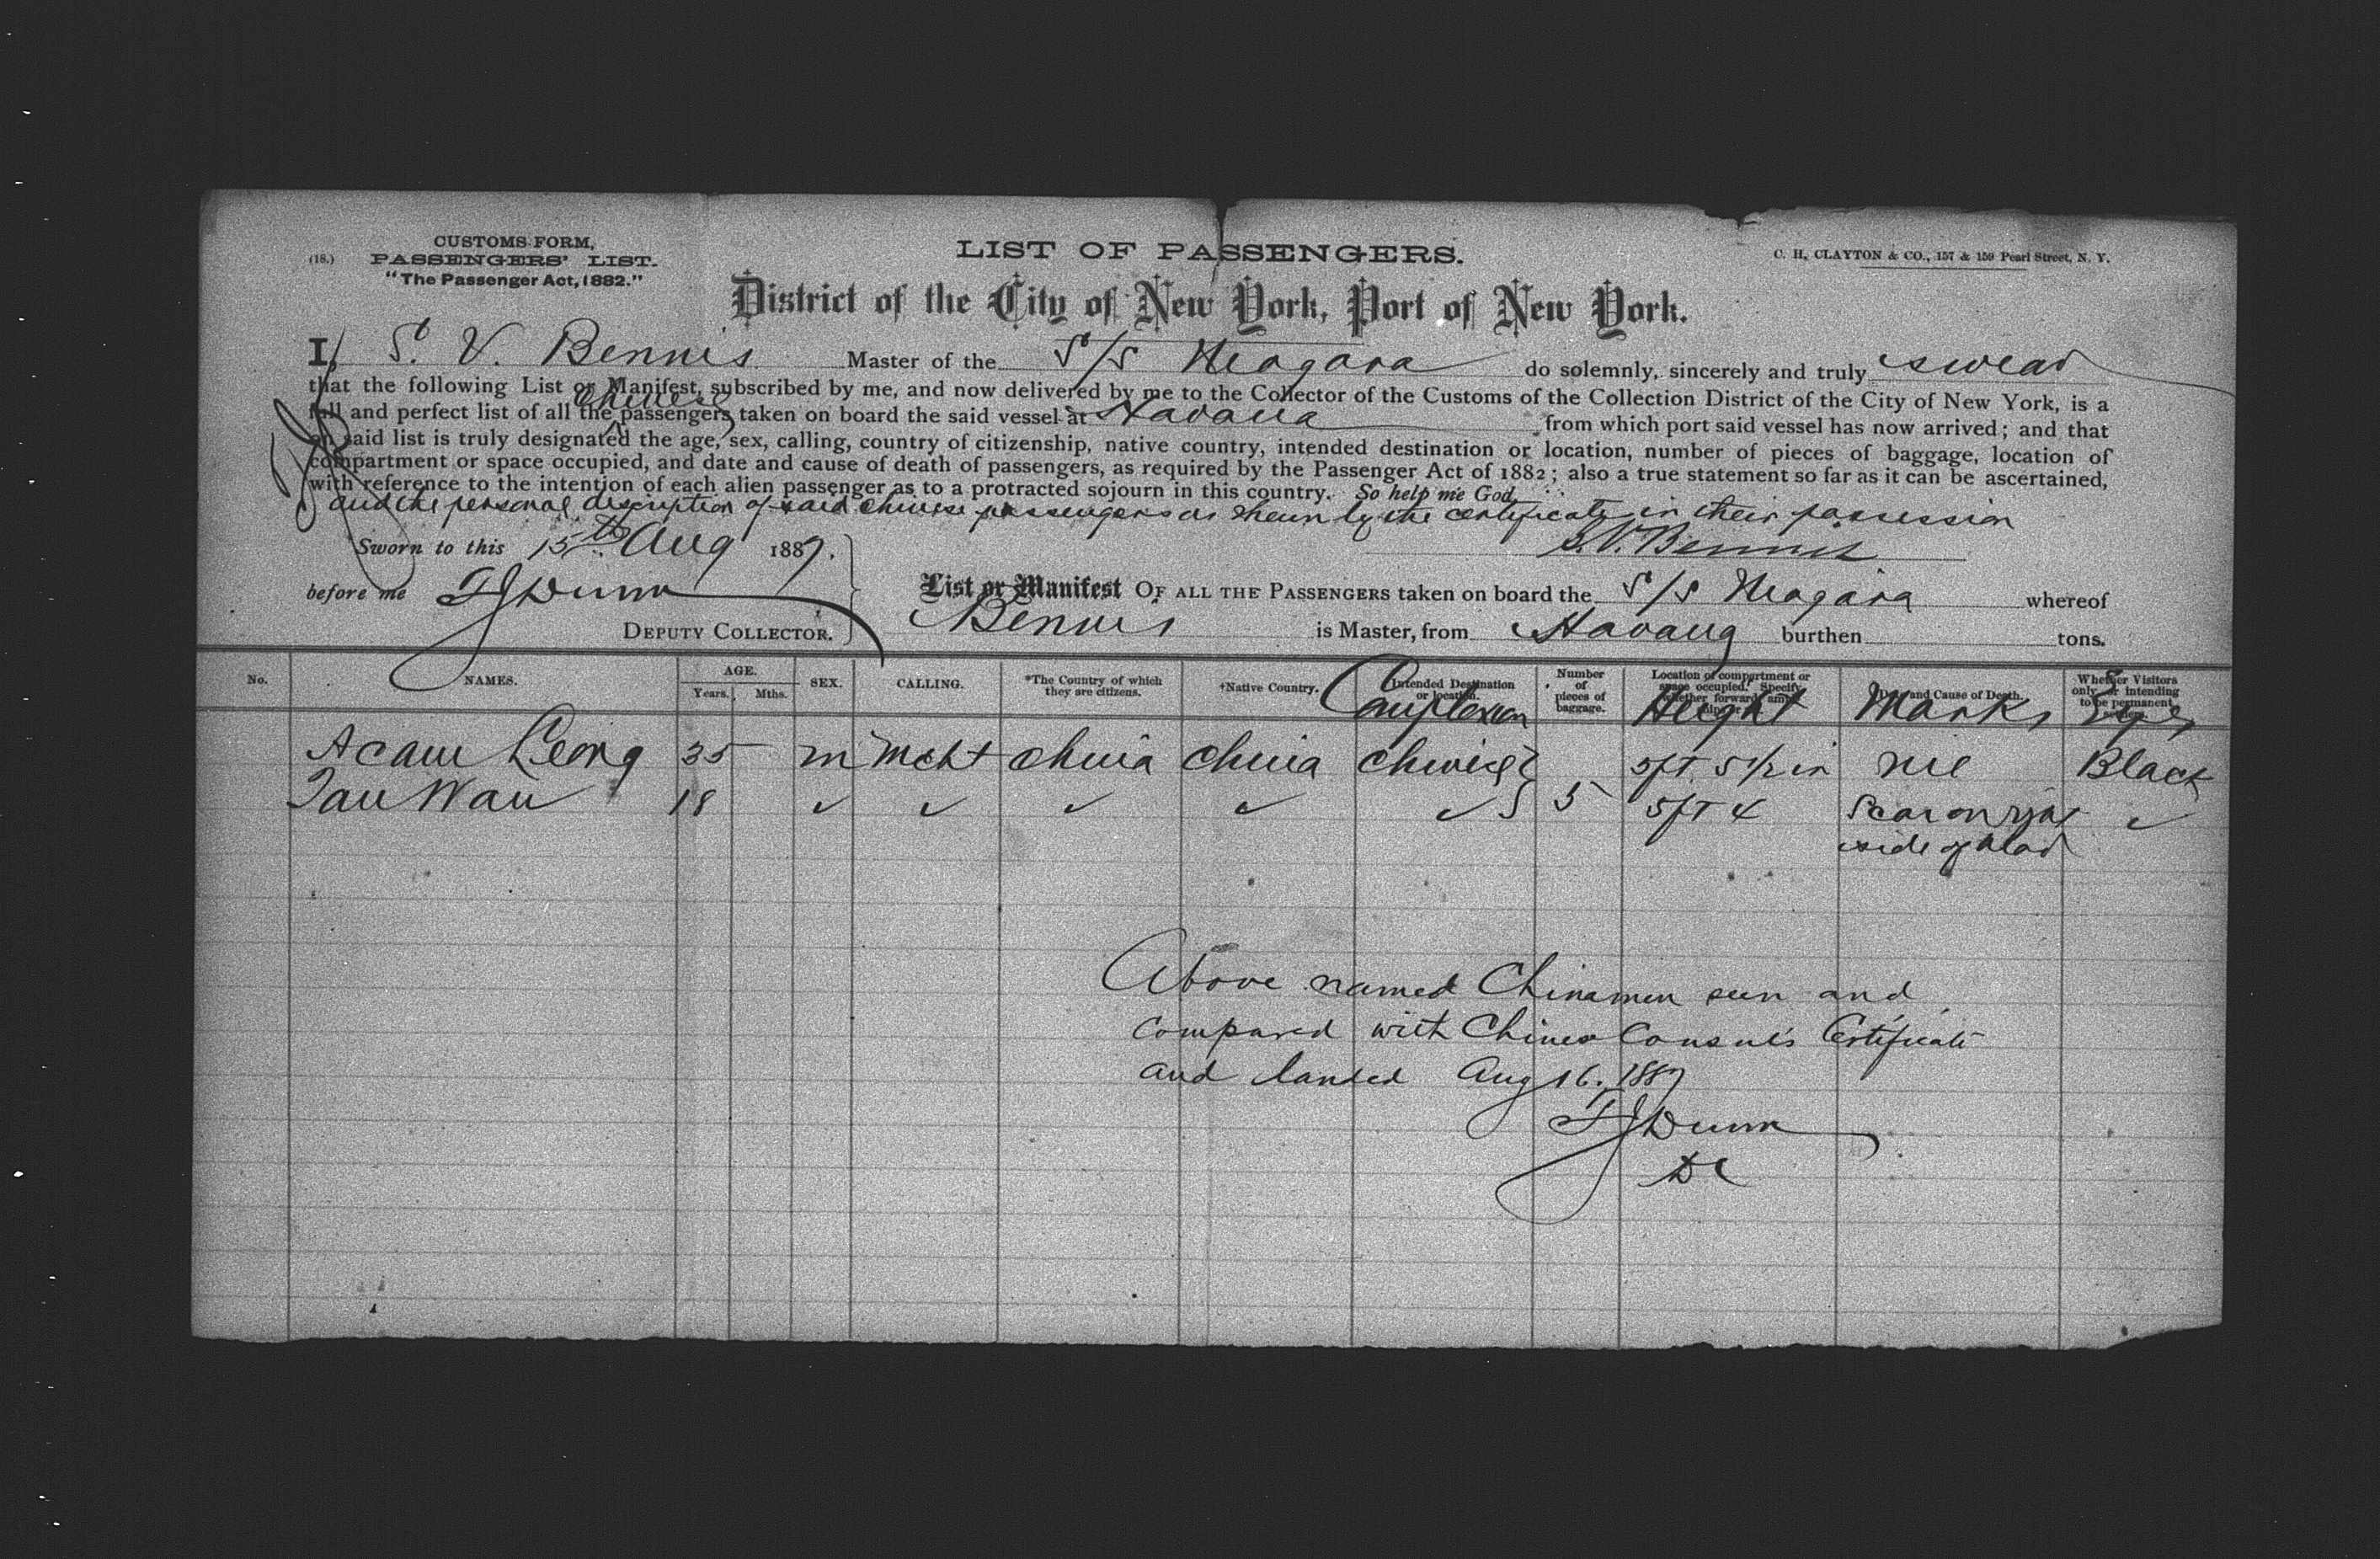 (18.)
CUSTOMS FORM,
PASSENGERS' LIST.
"The Passenger Act, 1882."
LIST OF PASSENGERS.
C. H. CLAYTON & CO., 157 & 159 Pearl Street, N. Y.
District of the City of New York, Port of New York.
I, S. V. Bennis Master of the S/S Niagara do solemnly, sincerely and truly swear
that the following List or Manifest, subscribed by me, and now delivered by me to the Collector of the Customs of the Collection District of the City of New York, is a
chinese
full and perfect list of all the passengers taken on board the said vessel at Havana from which port said vessel has now arrived; and that
on said list is truly designated the age, sex, calling, country of citizenship, native country, intended destination or location, number of pieces of baggage, location of
compartment or space occupied, and date and cause of death of passengers, as required by the Passenger Act of 1882; also a true statement so far as it can be ascertained,
with reference to the intention of each alien passenger as to a protracted sojourn in this country. So help me God.
and the personal description of said chinese passengers as shewn by the certificate in their possession
Sworn to this 15th Aug 1887.
S.V. Bennis
before me TJ Dunn
DEPUTY COLLECTOR.
List or Manifest OF ALL THE PASSENGERS taken on board the S/S Niagara whereof
Bennis is Master, from Havana burthen tons.
No. NAMES. AGE. Years. Mths. SEX. CALLING. *The Country of which they are citizens. †Native Country. Intended Destination or location. Number of pieces of baggage. Location of compartment or space occupied. Specify whether forward, amidships or Date and Cause of Death. Whether Visitors only or intending to be permanent
Complexion Height Marks Eyes
Acam Leong 35 m Mcht China China Chinese 5ft 5 1/2 in nil Black
Tau Wau 18 ✓ ✓ ✓ ✓ ✓ 5 5ft 4 Scar on right ✓
side of head
Above named Chinamen seen and
compared with Chinese Consul's Certificate
and landed Aug 16. 1887
TJ Dunn
DC